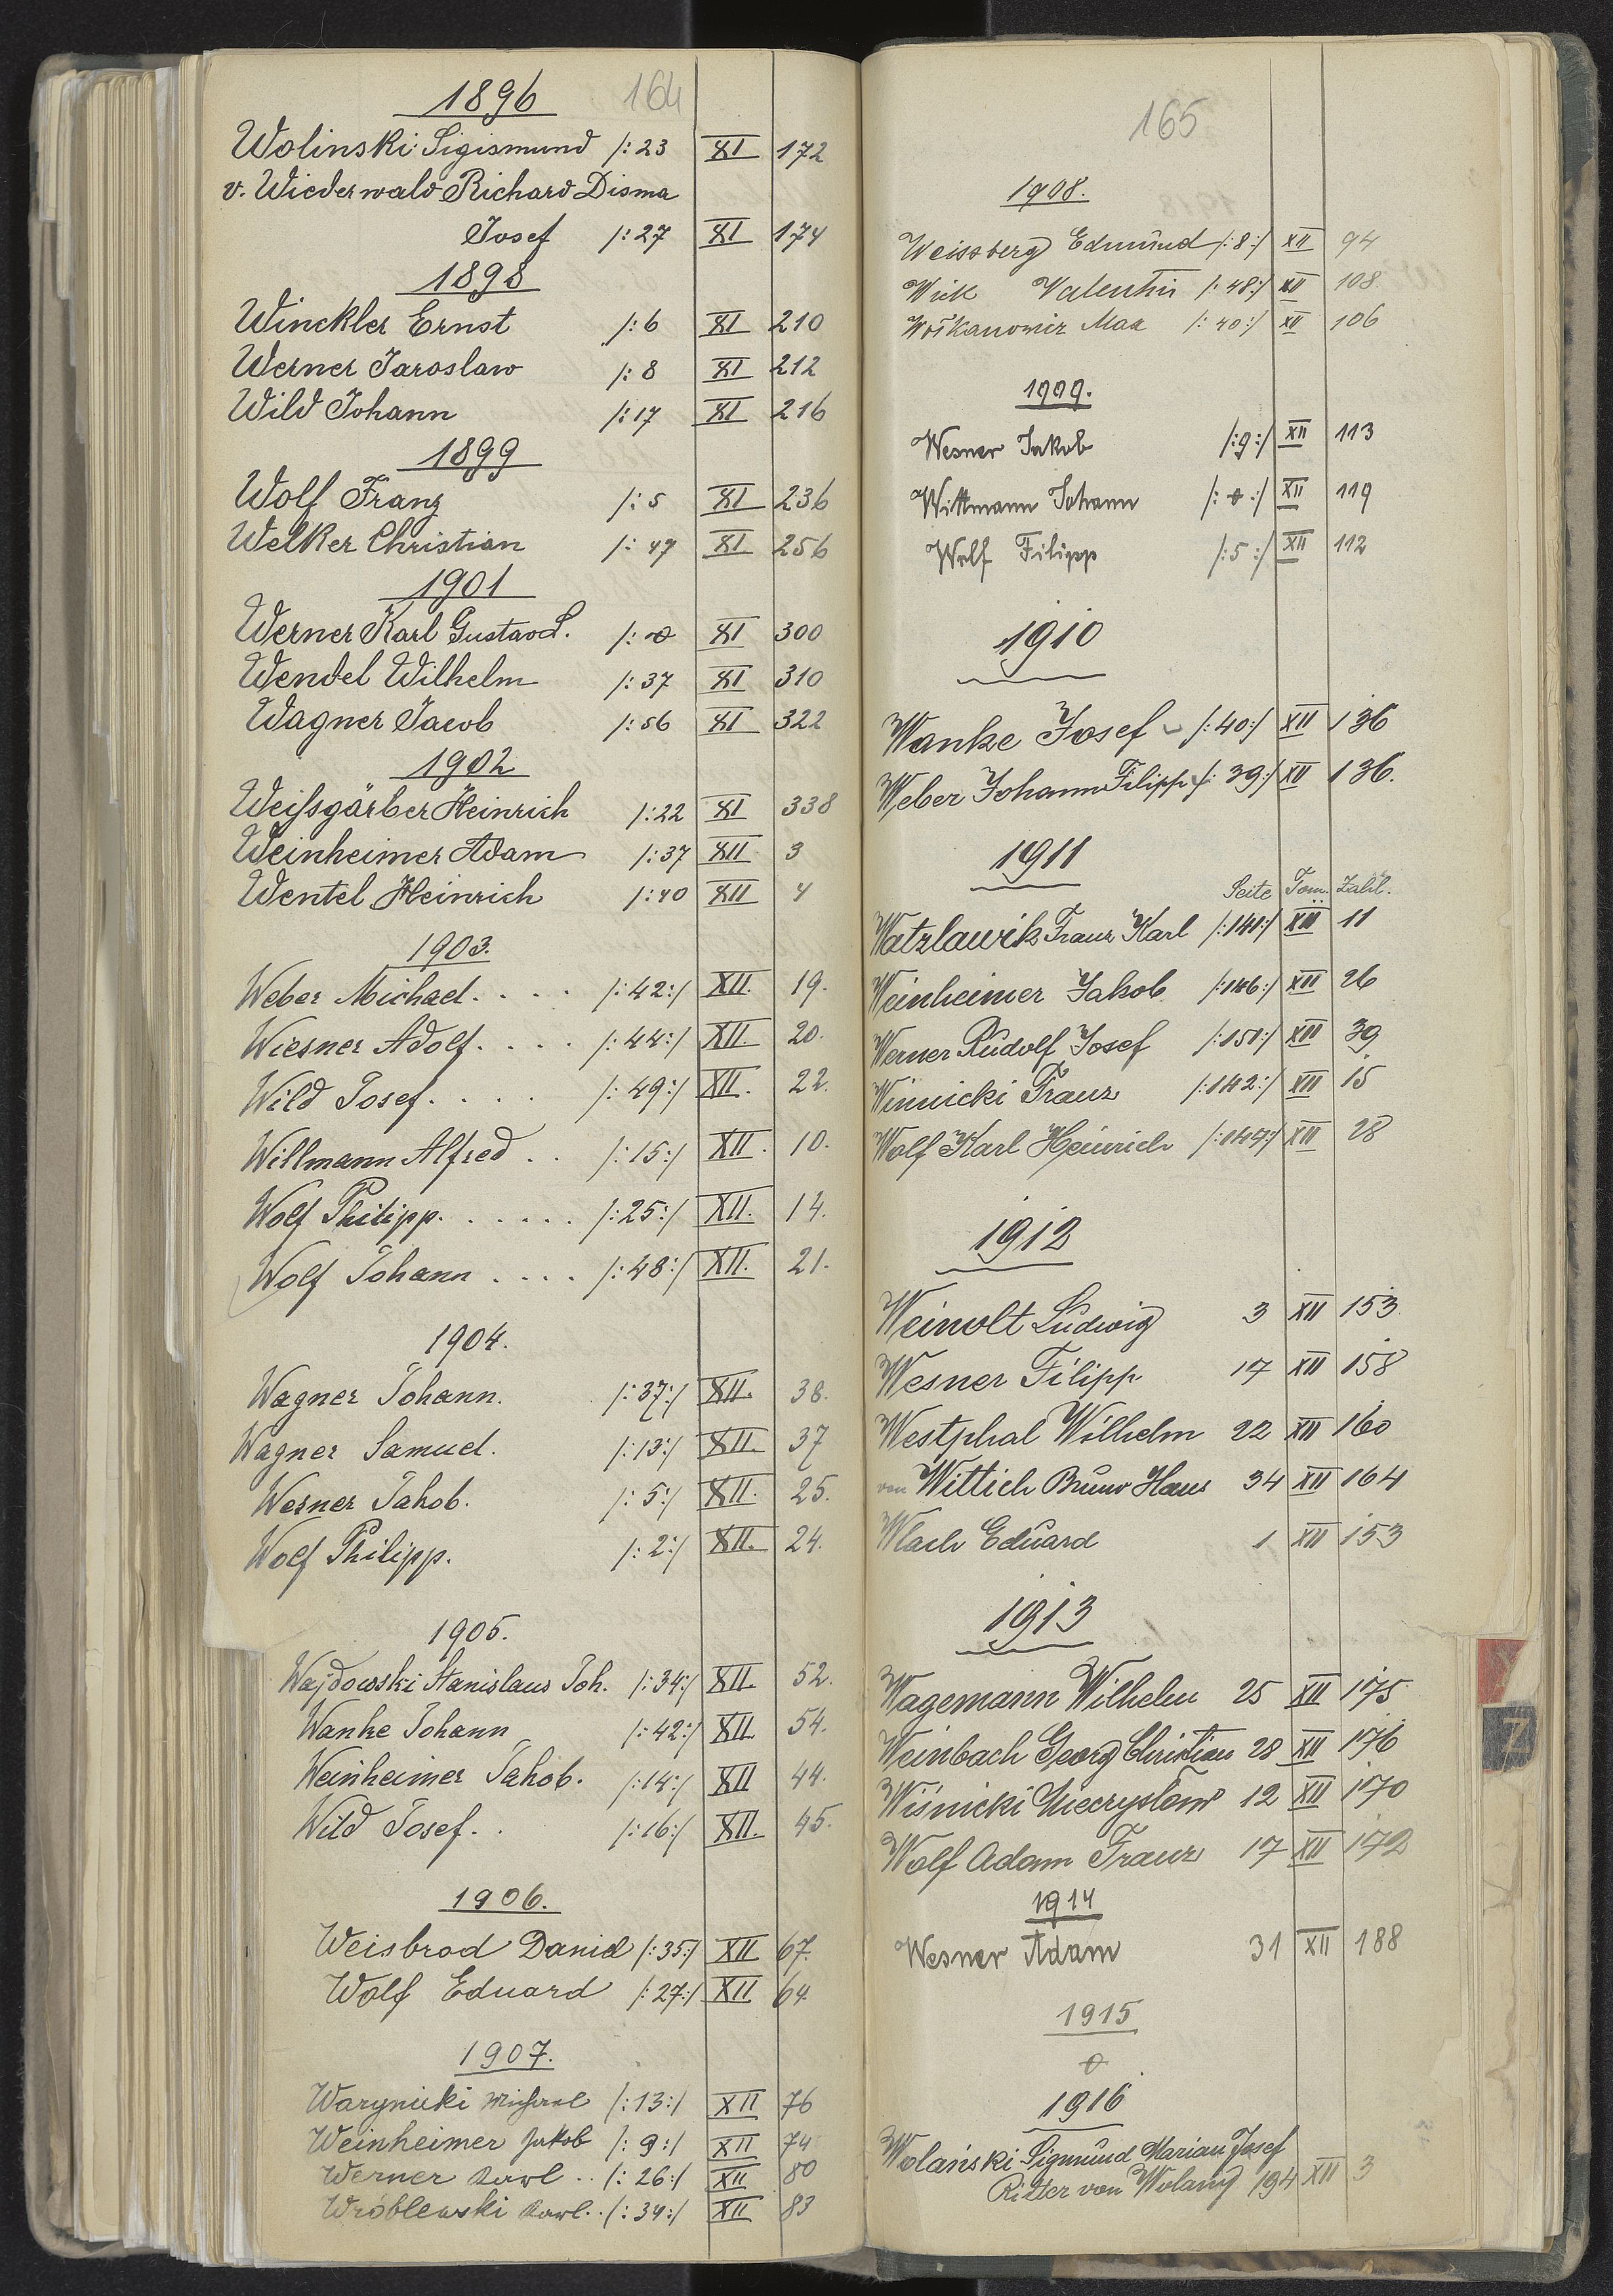 1896 164
Wolinski Sigismund /: 23 XI 172
v. Wiederwald Richard Disma
Josef /: 27 XI 174
1898
Winckler Ernst /: 6 XI 210
Werner Jaroslaw /: 8 XI 212
Wild Johann /: 17 XI 216
1899
Wolf Franz /: 5 XI 236
Welker Christian /: 47 XI 256
1901
Werner Karl Gustav L. /: XI 300
Wendel Wilhelm /: 37 XI 310
Wagner Jacob /: 56 XI 322
1902
Weifsgärber Heinrich /: 22 XI 338
Weinheimer Adam /: 37 XII 3
Wentel Heinrich /: 40 XII 4
1903.
Weber Michael. . . . /: 42 :/ XII. 19.
Wiesner Adolf. . . . /: 44 :/ XII. 20.
Wild Josef. . . . /: 49 :/ XII. 22.
Willmann Alfred . . /: 15 :/ XII. 10.
Wolf Philipp. . . . . . /: 25 :/ XII. 14.
Wolf Johann . . . . /: 48 :/ XII. 21.
1904.
Wagner Johann. /: 37 :/ XII. 38.
Wagner Samuel. /: 13 :/ XII. 37
Wesner Jakob. /: 5 :/ XII. 25.
Wolf Philipp. /: 2 :/ XII. 24.
1905.
Wajdowski Stanislaus Joh. /: 34 :/ XII. 52.
Wanke Johann /: 42 :/ XII. 54.
Weinheimer Jakob. /: 14 :/ XII 44.
Wild Josef. . /: 16 :/ XII. 45.
1906.
Weisbrod Daniel /: 35 :/ XII 67.
Wolf Eduard /: 27 :/ XII 64.
1907.
Warynicki Michael /: 13 :/ XII 76
Weinheimer Jakob /: 9 :/ XII 74
Werner Karl . . /: 26 :/ XII 80
Wróblewski Karl. . /: 34 :/ XII 83
165
1908.
Weissberg Edmund /: 8 :/ XII 94
Wick Valentin /: 48 :/ XII 108.
Max /: 40 :/ XII 106
1909.
Wesner Jakob /: 9 :/ XII 113
Wittmann Johann /: :/ XII 119
Wolf Filipp /: 5 :/ XII 112
1910
Wanke Josef /: 40 :/ XII 136
Weber Johann Filipp /: 39 :/ XII 136.
1911
Seite Tom. Zahl.
Watzlawik Franz Karl /: 141 :/ XII 11
Weinheimer Jakob /: 146 :/ XII 26
Werner Rudolf Josef /: 151 :/ XII 39
Winnicki Franz /: 142 :/ XII 15
Wolf Karl Heinrich /: 147 :/ XII 28
1912
Weinolt Ludwig 3 XII 153
Wesner Filipp 17 XII 158
Westphal Wilhelm 22 XII 160
von Wittich Bruno Hans 34 XII 164
Wlach Eduard 1 XII 153
1913
Wagemann Wilhelm 25 XII 175
Weinbach Georg Christian 28 XII 176
Wiśnicki Miecrysław 12 XII 170
Wolf Adam Franz 17 XII 172
1914
Wesner Adam 31 XII 188
1915
0
1916
Wolański Sigmund Marian Josef
Ritter von Wolany 194 XII 3
Z